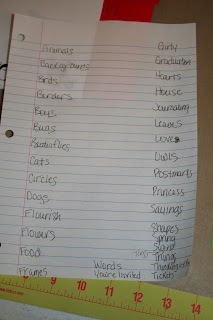 Animals
Backgrounds
Birds
Borders
Boys
Bugs
Butterflies
Cats
Circles
Dogs
Flourish
Flowers
Food
Frames
Girly
Graduation
Hearts
House
Journaling
Leaves
Love
Owls
Postmarks
Princess
Sayings
Shapes
Spring
Things
Thinking of
Tickets
Words
You're Invited
9
10
11
12
13
14